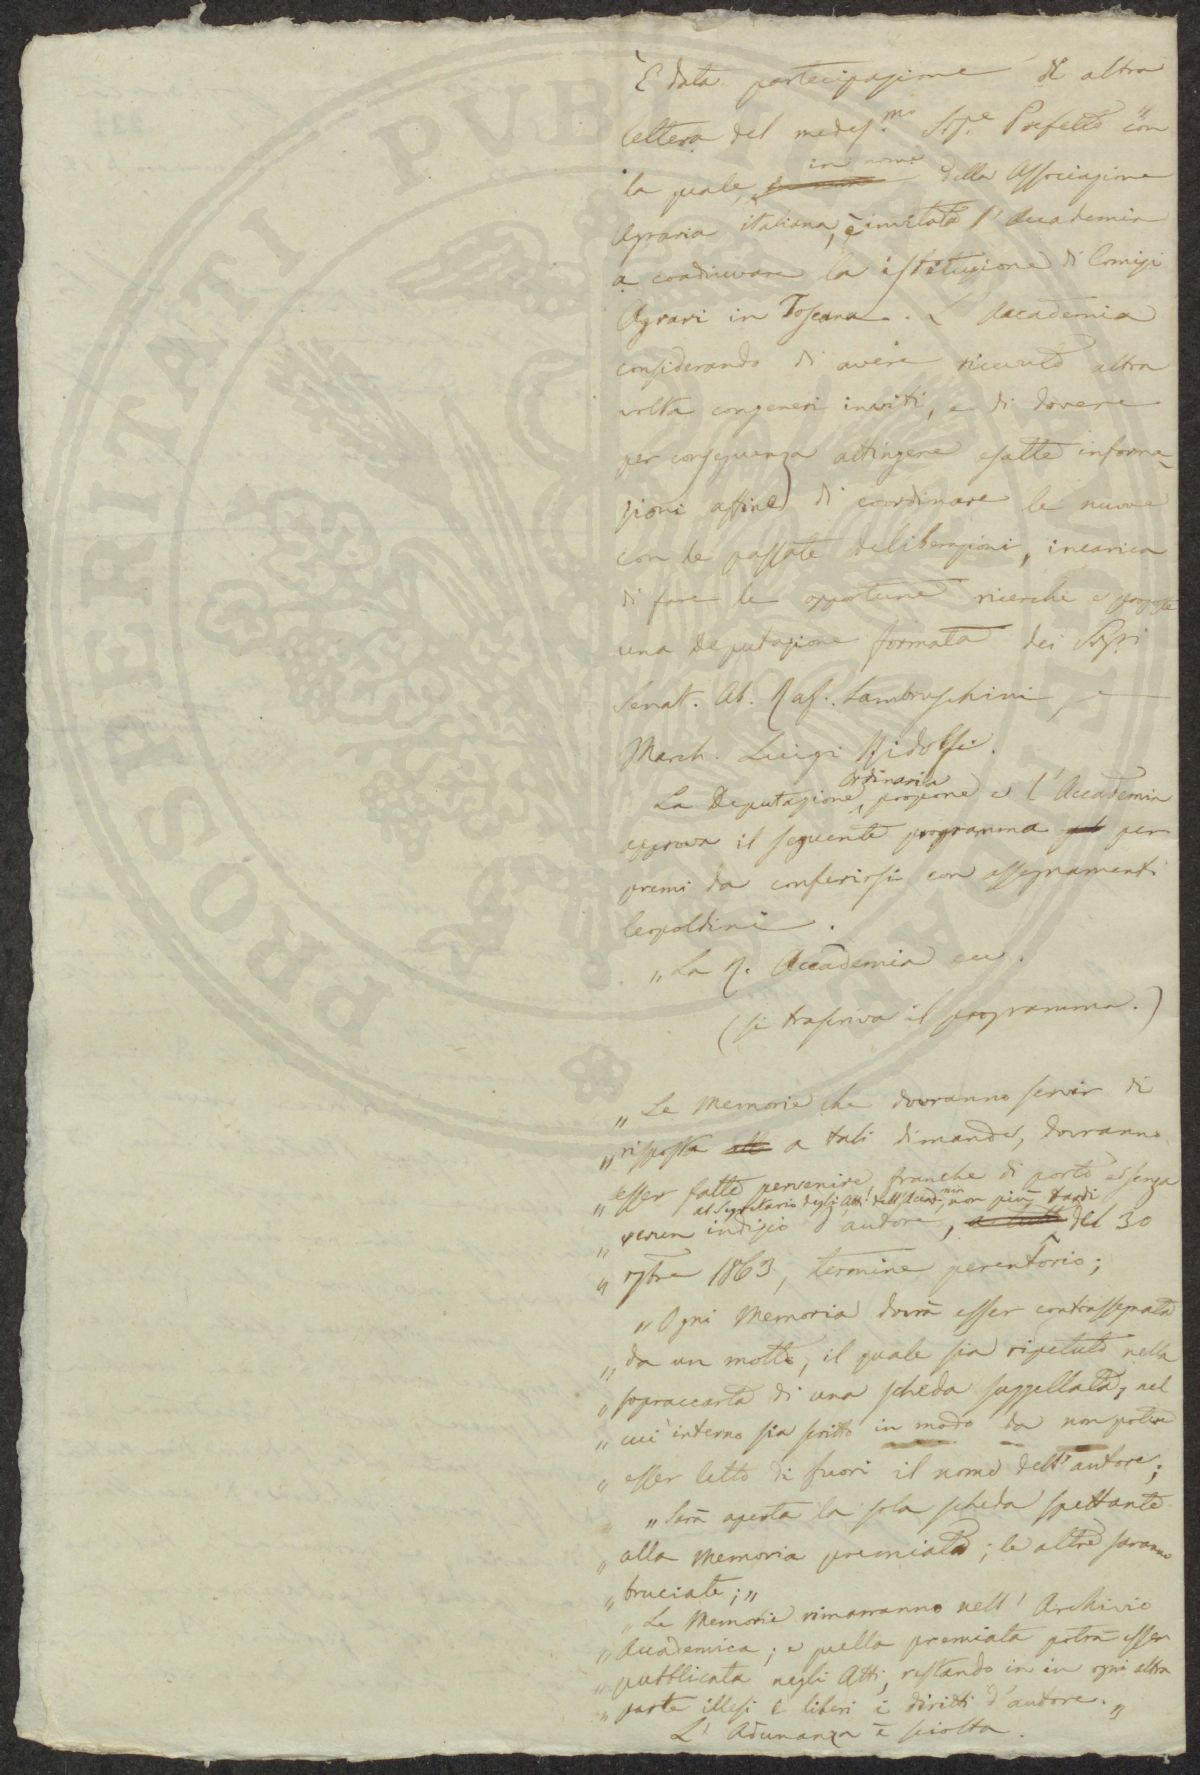 È data partecipazione di altra
lettera del medes.mo Sig.e Prefetto con
la quale, in nome della Associazione
Agraria italiana, è invitata l'Accademia
a coadiuvare la istituzione di Comizi
Agrari in Toscana. L'Accademia
considerando di avere ricevuto altra
volta congeneri inviti, e di dovere
per conseguenza attingere esatte informa-
zioni affine di coordinare le nuove
con le passate deliberazioni, incarica
di fare le opportune ricerche e proposte
una Deputazione formata dei Sigg.ri
Senat. Ab. Raf. Lambruschini, e
March. Luigi Ridolfi.
La Deputazione ordinaria, propone e l'Accademia
approva il seguente programma per
premi da conferirsi con assegnamenti
leopoldini.
„La R. Accademia ecc.
(si trascriva il programma.)
„Le Memorie che dovranno servir di
„risposta a tali dimande, dovranno
„esser fatte pervenire, franche di porto e senza
„verun indizio d'autore, al Segretario degli Atti dell'Accad.mia non più tardi del 30
„9bre 1863, termine perentorio;
„Ogni Memoria dovrà esser contrassegnata
„da un motto, il quale sia ripetuto nella
„sopraccarta di una scheda suggellata, nel
„cui interno sia scritto in modo da non potere
„esser letto di fuori il nome dell'autore;
„Sarà aperta la sola scheda spettante
„alla Memoria premiata; le altre saranno
„bruciate;„
„Le Memorie rimarranno nell'Archivio
„Accademico; e quella premiata potrà esser
„pubblicata negli Atti, restando in in ogni altra
„parte illesi e liberi i diritti d'autore.„
L'Adunanza è sciolta.
PROSPERITATI PUBLICAE AUGENDAE